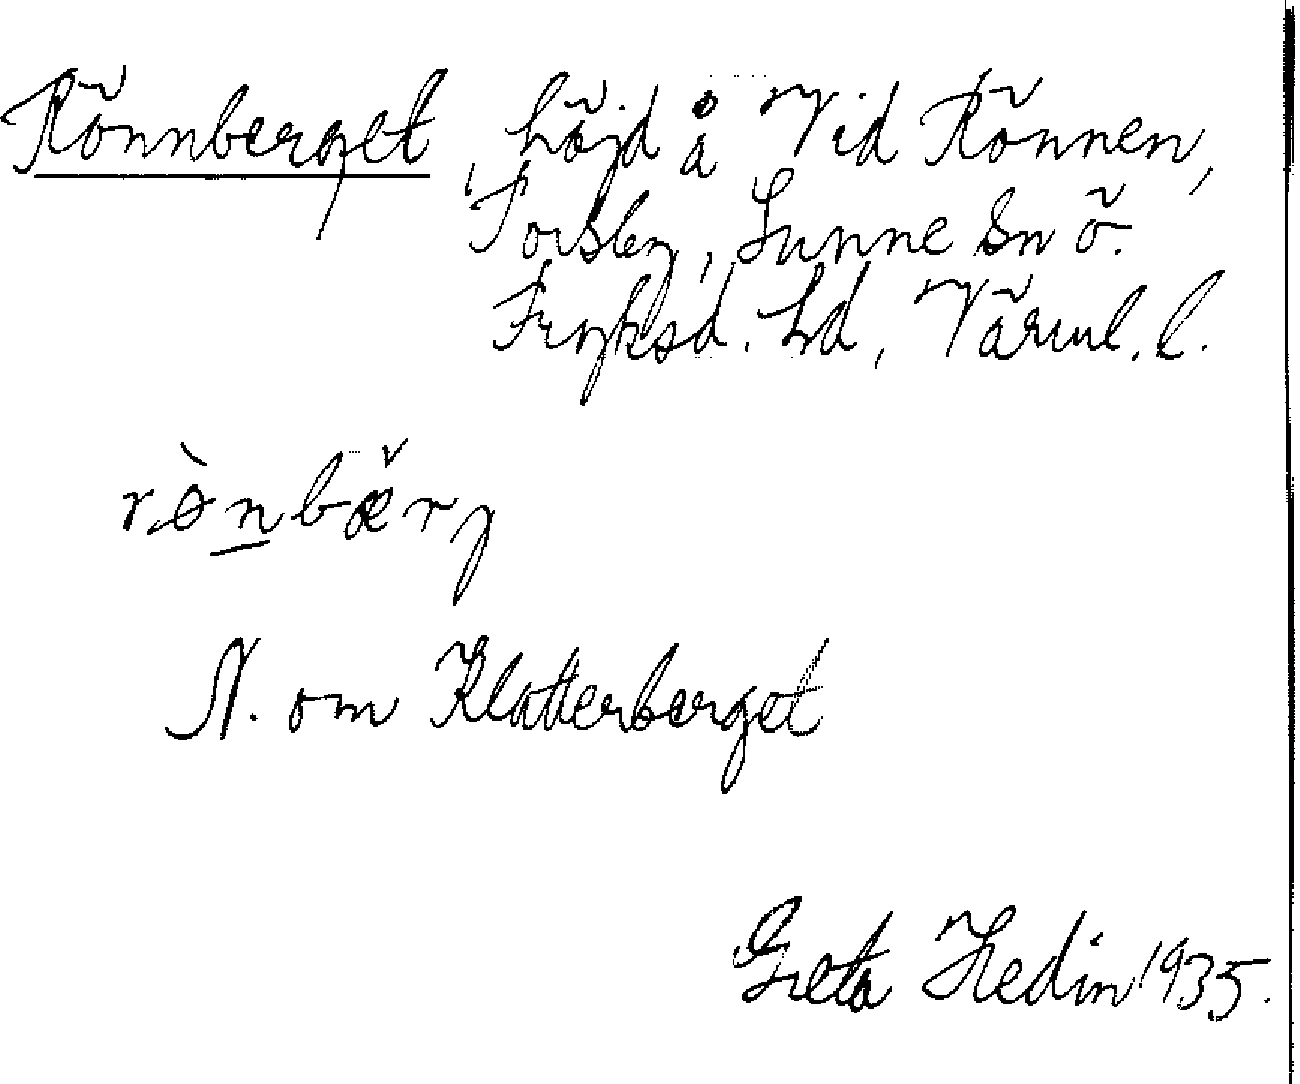 Rönnberget, höjd å Vid Rönnen,
Torsby, Sunne sn Ö.
Fryksd. hd, Värml. l.
rø̀nbæ̌rj
N. om Klatterberget
Greta Hedin 1935.